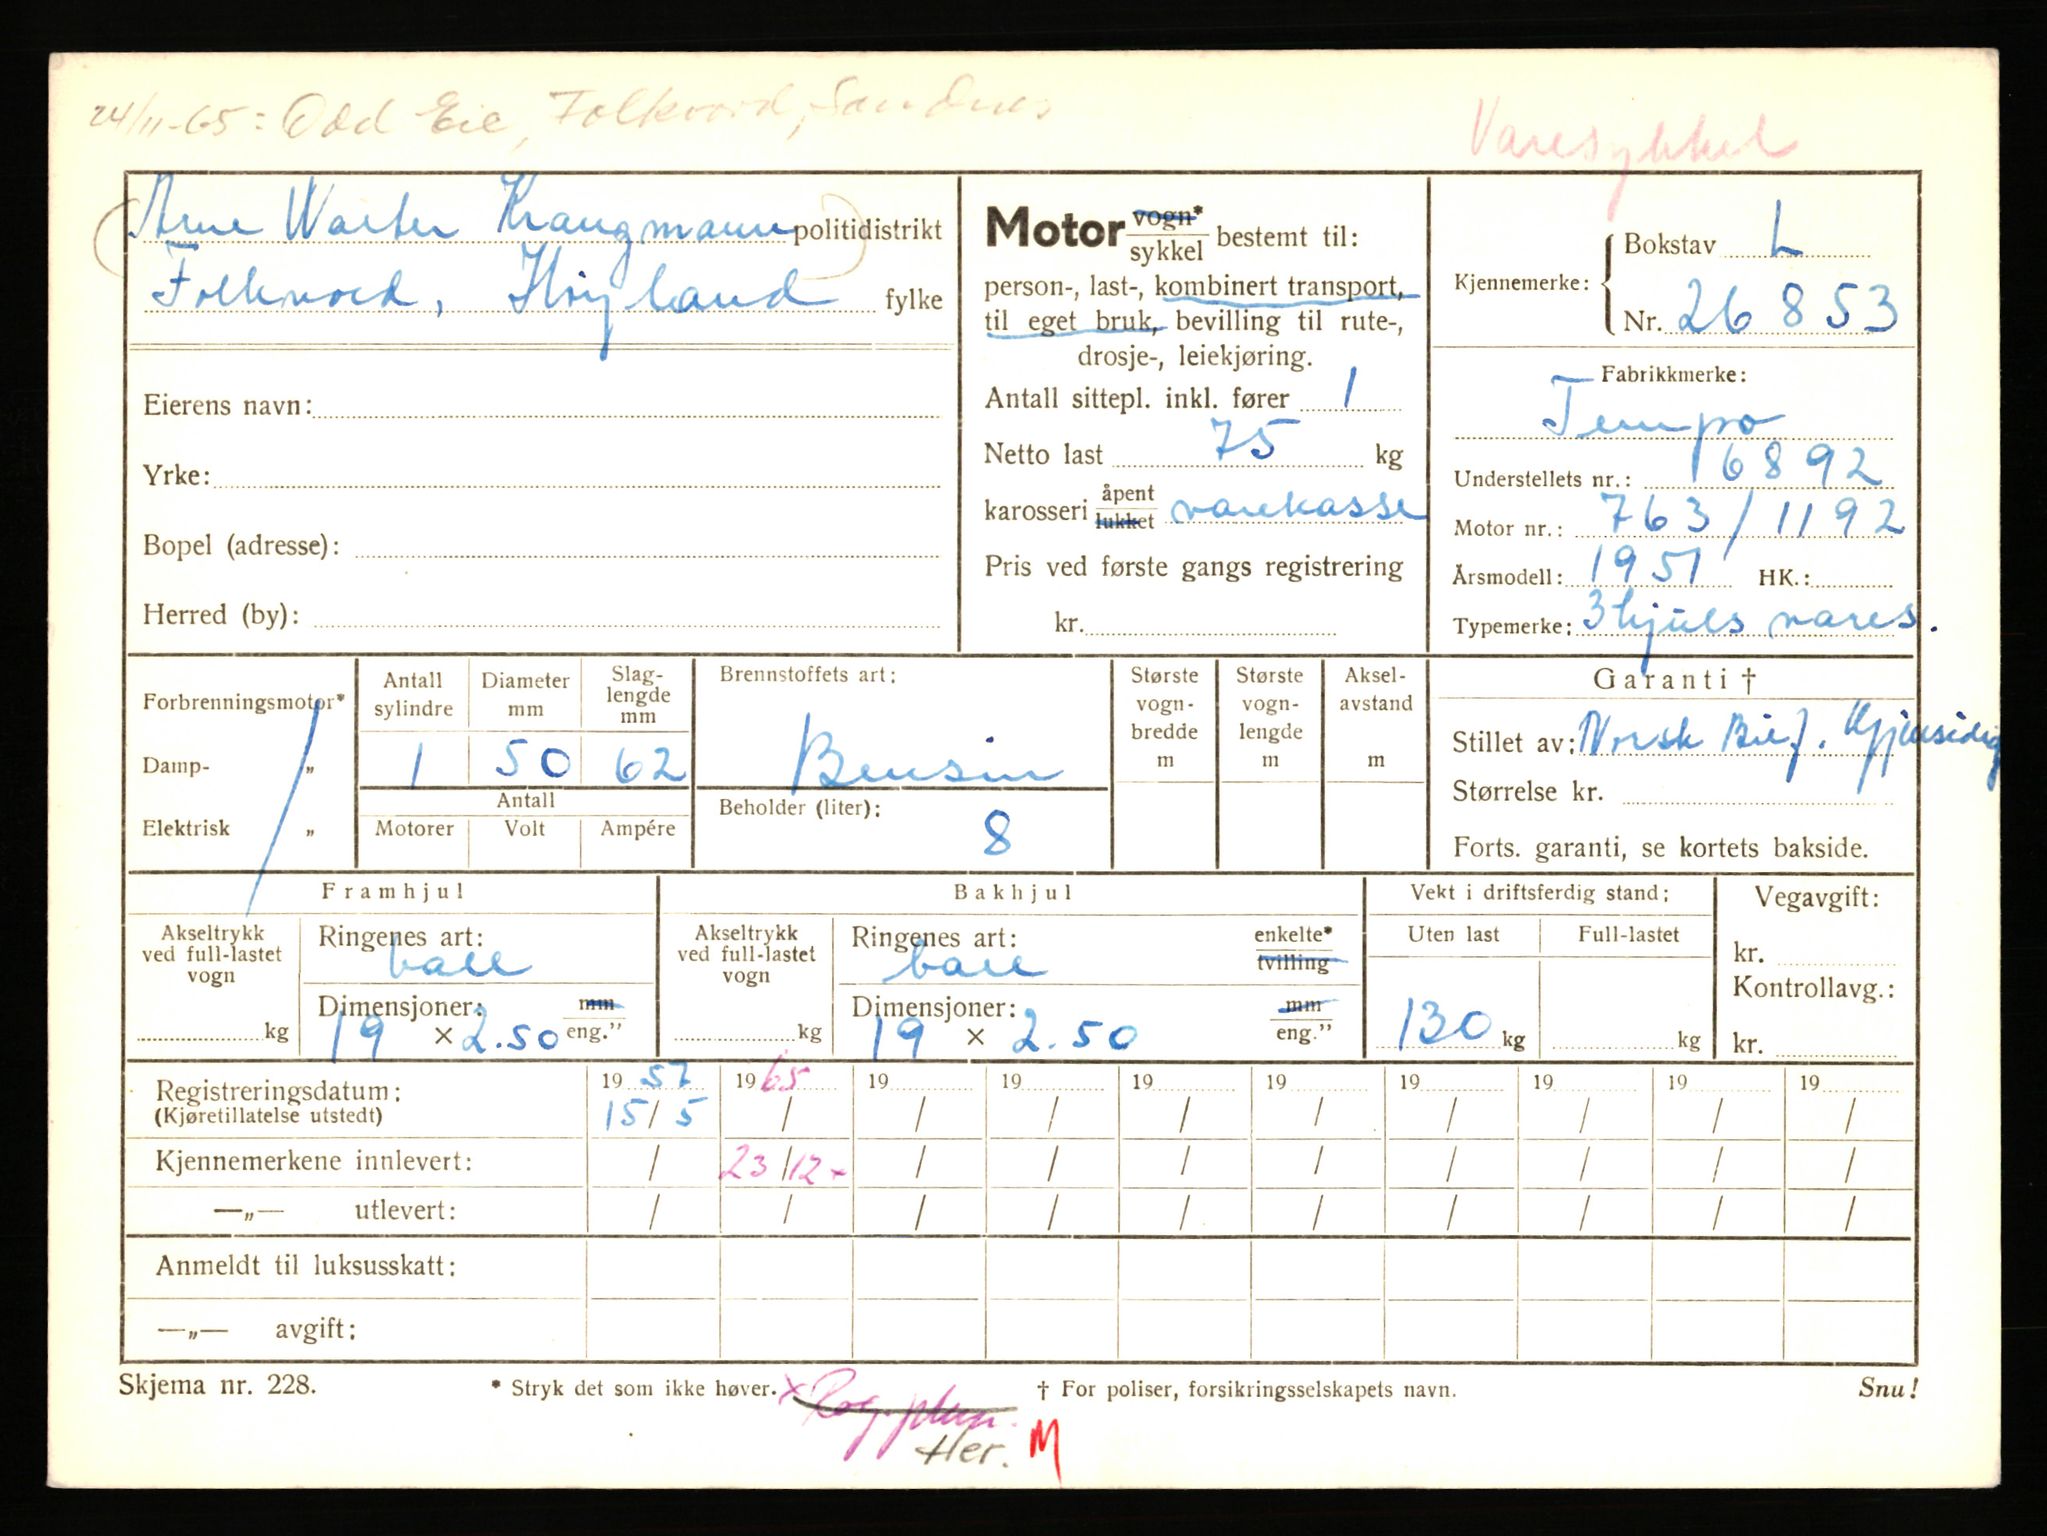 24/11-65: Odd Eie, Folkvord, Sandnes
Varesykkel
Arne Walter Krangmann politidistrikt
Folkvord, Høyland fylke
Eierens navn:
Yrke:
Bopel (adresse):
Herred (by):
Motor vogn* sykkel bestemt til:
person-, last-, kombinert transport,
til eget bruk, bevilling til rute-,
drosje-, leiekjøring.
Antall sittepl. inkl. fører 1
Netto last 75 kg
karosseri åpent lukket varekasse
Pris ved første gangs registrering
kr.
Kjennemerke: Bokstav L
Nr. 26853
Fabrikkmerke:
Tempo
Understellets nr.: 16892
Motor nr.: 763/1192
Årsmodell: 1951 HK.:
Typemerke: 3hjuls vares.
Forbrenningsmotor*
Damp- „
Elektrisk „
Antall sylindre
Diameter mm
Slaglengde mm
1 50 62
Antall
Motorer Volt Ampére
Brennstoffets art:
Bensin
Beholder (liter):
8
Største vogn-bredde m
Største vogn-lengde m
Aksel-avstand m
Garanti †
Stillet av: Norsk Bilf. Gjensidig
Størrelse kr.
Forts. garanti, se kortets bakside.
Framhjul
Akseltrykk ved full-lastet vogn
kg
Ringenes art:
ball
Dimensjoner: mm
19 × 2.50 eng.”
Bakhjul
Akseltrykk ved full-lastet vogn
kg
Ringenes art: enkelte*
ball tvilling
Dimensjoner: mm
19 × 2.50 eng.”
Vekt i driftsferdig stand:
Uten last Full-lastet
130 kg kg
Vegavgift:
kr.
Kontrollavg.:
kr.
Registreringsdatum: 19 57 19 65 19 19 19 19 19 19 19 19
(Kjøretillatelse utstedt) 15/5 / / / / / / / / /
Kjennemerkene innlevert: / 23/12 × / / / / / / / /
—„— utlevert: / / / / / / / / / /
Anmeldt til luksusskatt:
—„— avgift:
Skjema nr. 228. * Stryk det som ikke høver. † For poliser, forsikringsselskapets navn. Snu!
Her. M